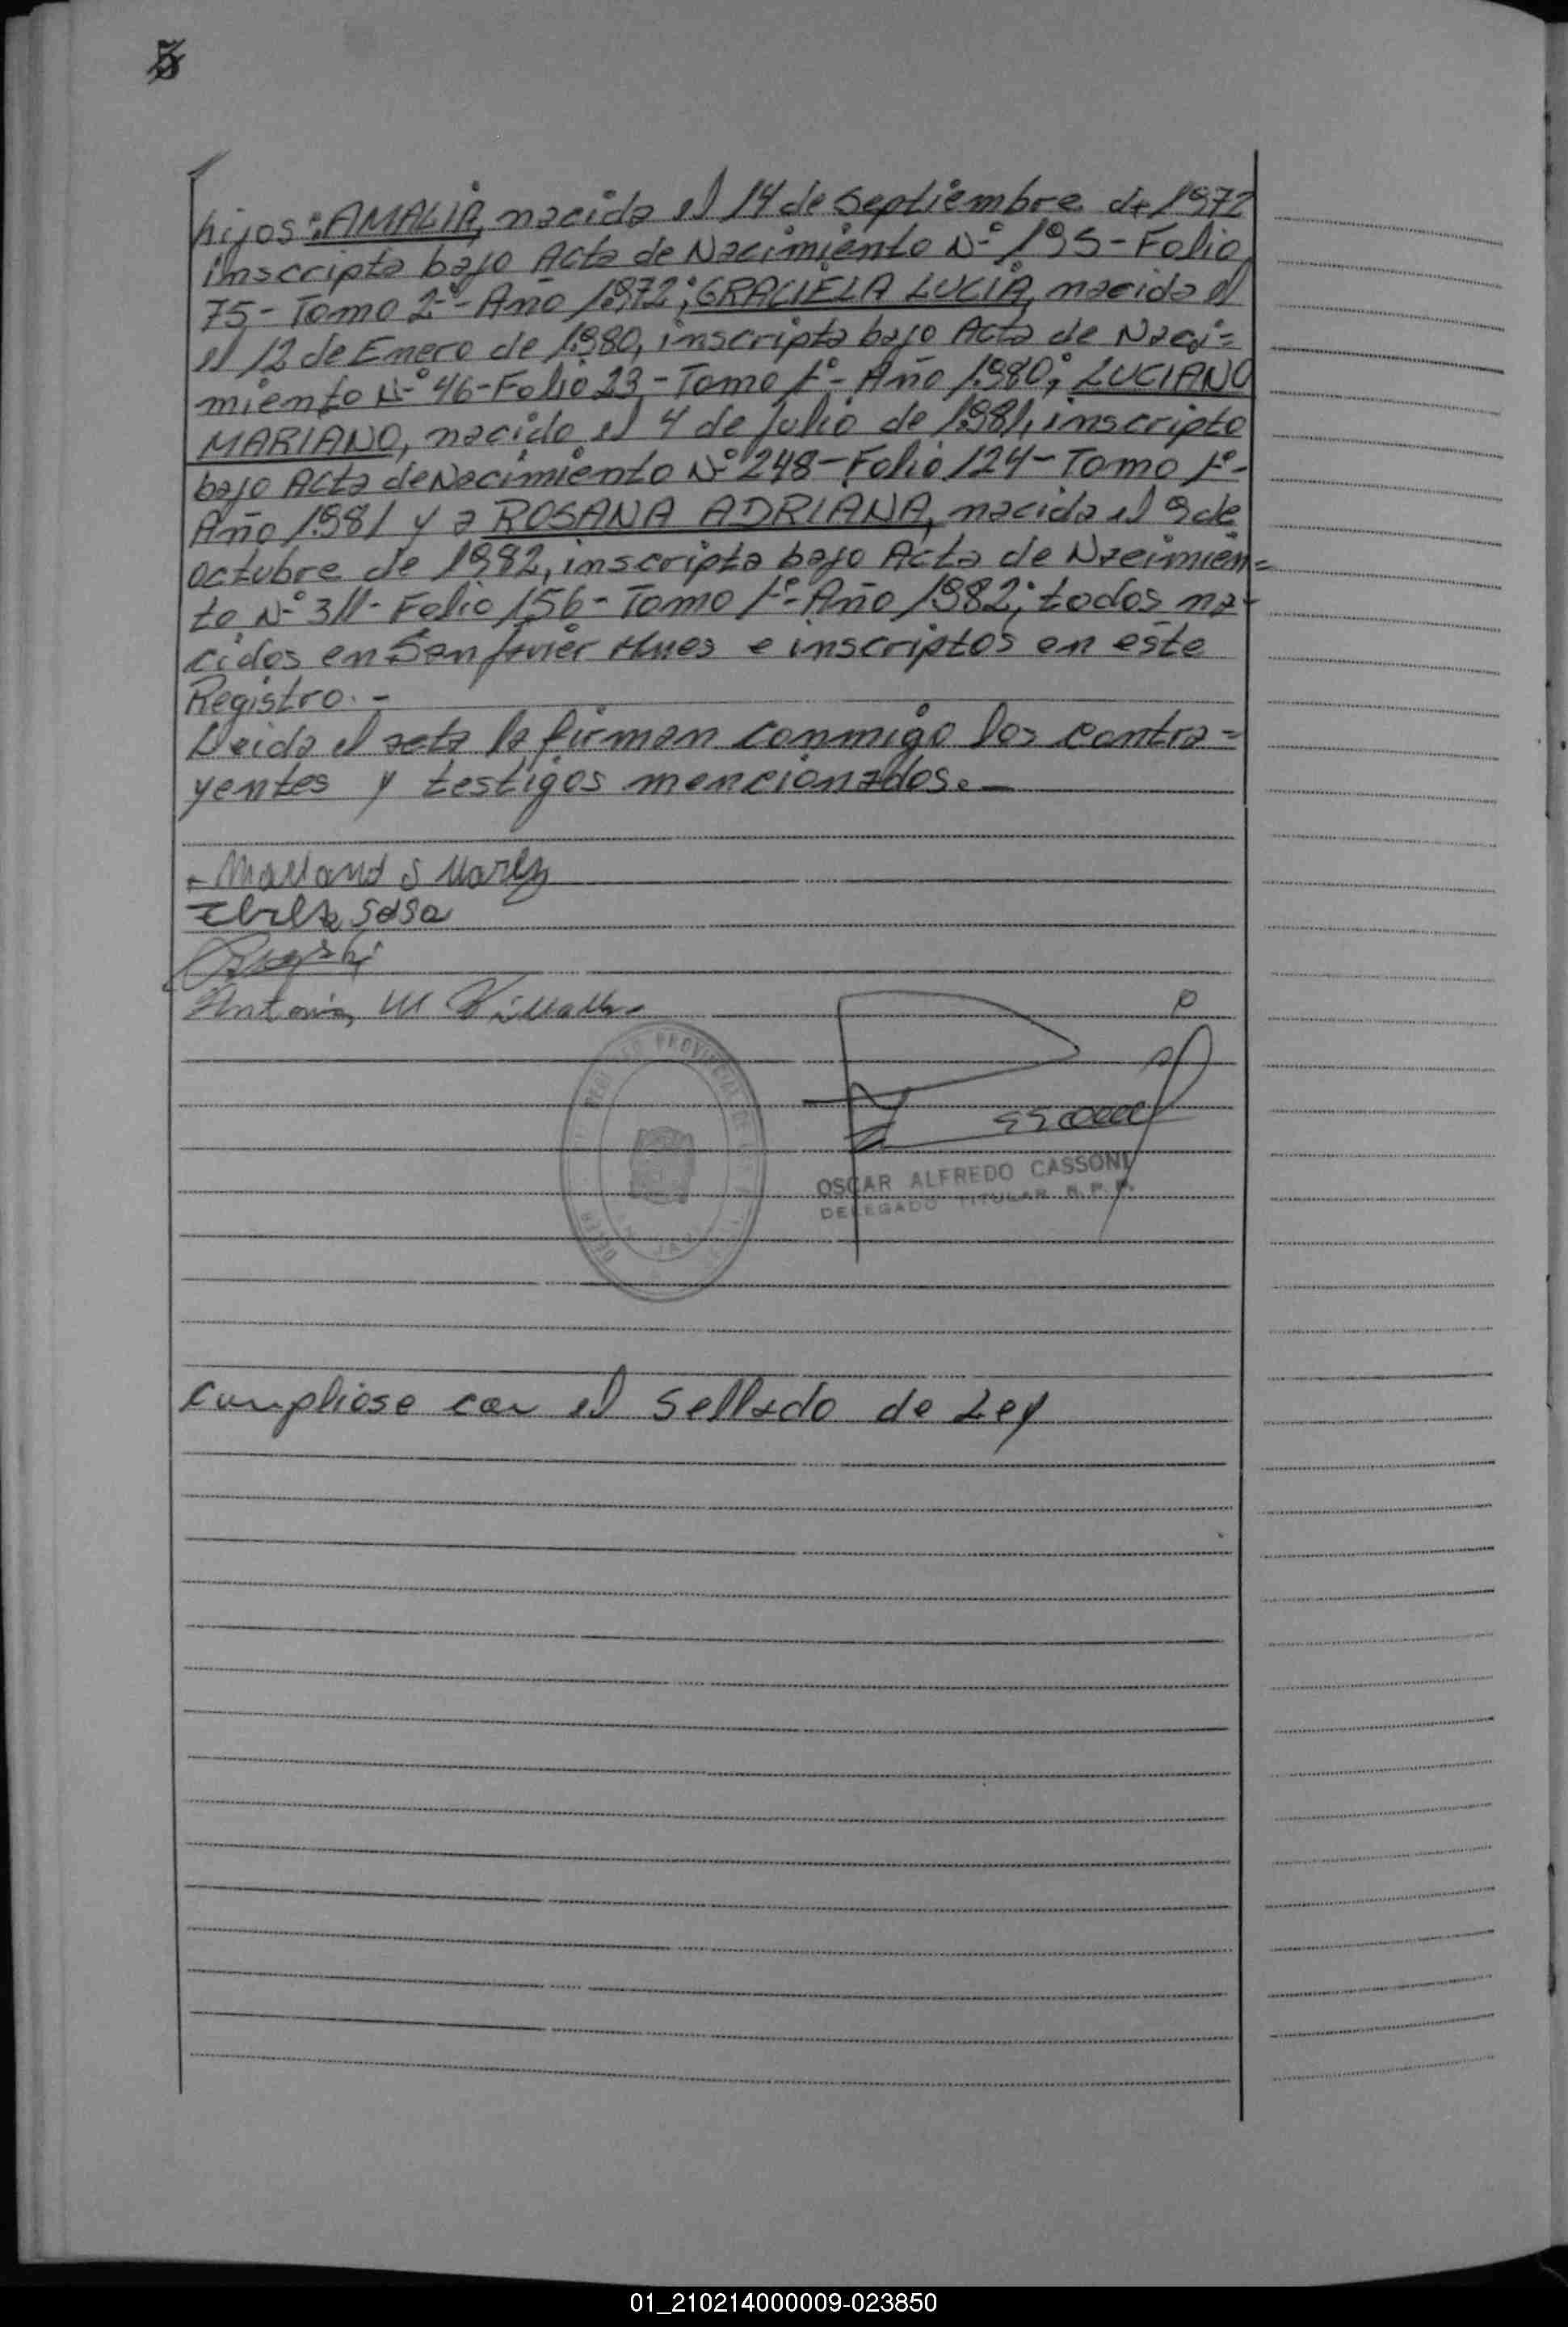 hijos: AMALIA, nacida el 14 de Septiembre de 1972
inscripta bajo Acta de Nacimiento Nº 195 - Folio
75 - Tomo 2º - Año 1.972; GRACIELA LUCIA, nacida el
el 12 de Enero de 1.980, inscripta bajo Acta de Naci=
miento Nº 46 - Folio 23 - Tomo 1º - Año 1.980; LUCIANO
MARIANO, nacido el 4 de Julio de 1.981, inscripto
bajo Acta de Nacimiento Nº 248 - Folio 124 - Tomo 1º -
Año 1.981 y a ROSANA ADRIANA, nacida el 9 de
octubre de 1982, inscripta bajo Acta de Nacimien=
to Nº 311 - Folio 156 - Tomo 1º - Año 1982; todos na-
cidos en San Javier Mnes e inscriptos en este
Registro. -
Leida el acta la firman conmigo los contra=
yentes y testigos mencionados. -
Sosa
Antonio M
REGISTRO PROVINCIAL DE
OSCAR ALFREDO CASSONI
DELEGADO TITULAR R. P. P.
Cumpliose con el Sellado de Ley
01_210214000009-023850